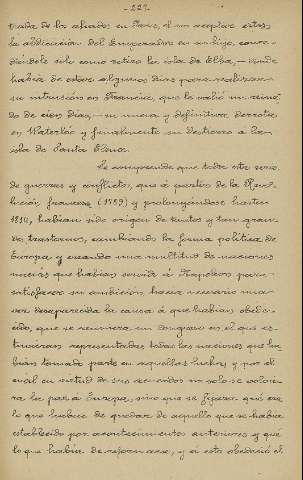 - 227 -
trada de los aliados en Paris, el no aceptar estos
la abdicacion del Emperador en su hijo, conce-
diéndole solo como retiro la isla de Elba, — donde
habia de estar algunos dias para realizar
su intrusion en Francia, que le valió un reina-
do de cien dias, — su nueva y definitiva derrota
en Waterlóo y finalmente su destierro a la
isla de Santa Elena.
Se comprende que toda esta serie
de guerras y conflictos, que á partir de la Revo-
lución francesa (1789) y prolongándose hasta
1814, habian sido origen de tantos y tan gran-
des trastornos, cambiando la forma politica de
Europa y creando una multitud de naciones
nuevas que habian servido á Napoleon para
satisfacer su ambición hacia necesario una
vez desaparecida la causa á que habian obede-
cido, que se reuniera un Congreso en el que es-
tuvieran representadas todas las naciones que ha-
bian tomado parte en aquellas luchas, y por el
cual en virtud de sus acuerdos no solo se valora-
ra la paz a Europa, sino que se fijara qué era
lo que hubiese de quedar de aquello que se habia
establecido por acontecimientos anteriores y qué
lo que habia de reformarse, y á esto obedeció el